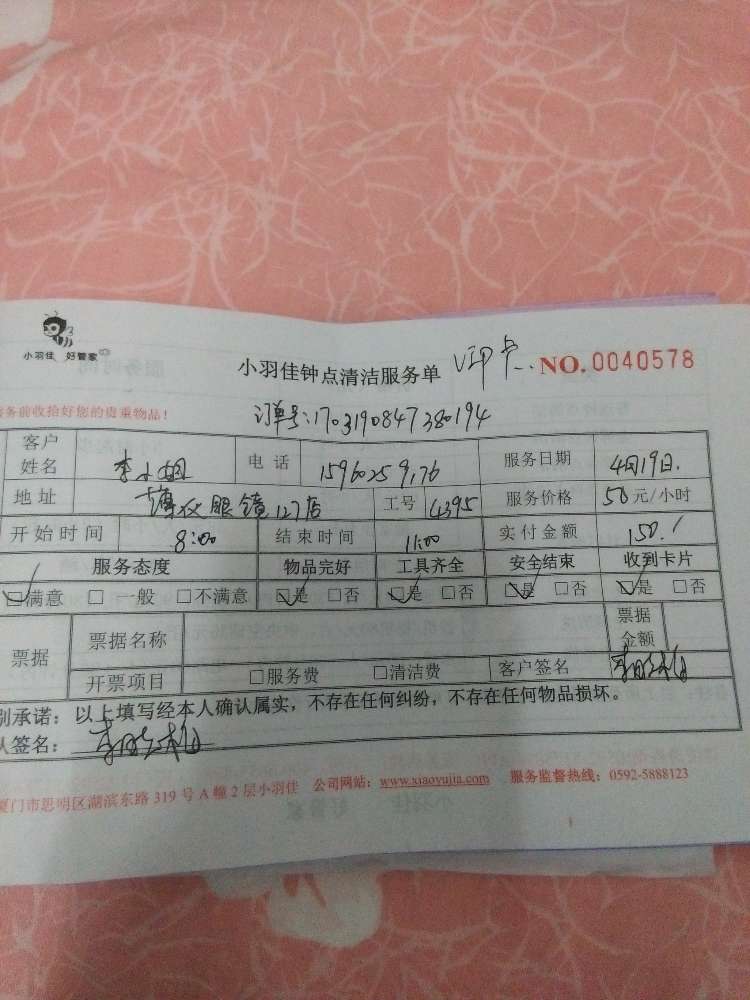 小羽佳 好管家
小羽佳钟点清洁服务单 VIP卡 NO.0040578
务前收拾好您的贵重物品！ 订单号:1703190847380194
客户姓名 李小姐 电话 服务日期 4月19日.
地址 眼镜127店 工号 4395 服务价格 50元/小时
开始时间 8:00 结束时间 11:00 实付金额 150.
服务态度 物品完好 工具齐全 安全结束 收到卡片
☑满意 □一般 □不满意 ☑是 □否 ☑是 □否 ☑是 □否 ☑是 □否
票据 票据名称 票据金额
开票项目 □服务费 □清洁费 客户签名
别承诺：以上填写经本人确认属实，不存在任何纠纷，不存在任何物品损坏。
人签名：
厦门市思明区湖滨东路319号A幢2层小羽佳 公司网站：www.xiaoyujia.com 服务监督热线：0592-5888123